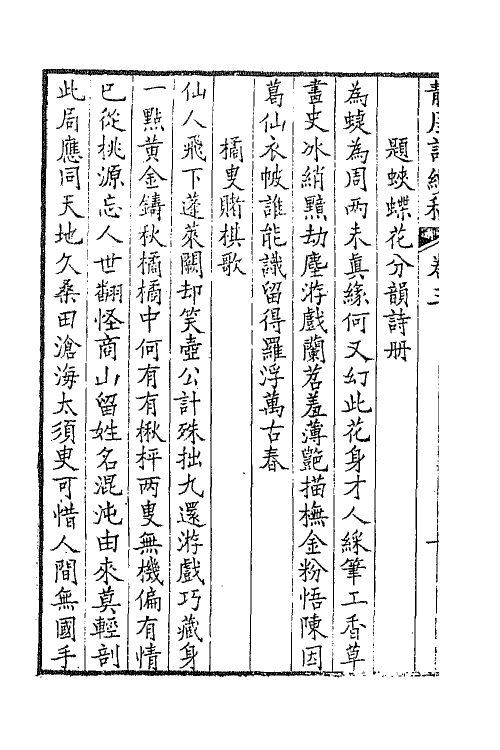 卷三
題蛺蝶花分韻詩册
為蜨為周兩未真緣何又幻此花身才人綵筆工香草
畫史冰綃黦劫塵游戲蘭苕羞薄艷描橅金粉悟陳因
葛仙衣帔誰能識留得羅浮萬古春
橘叟賭棋歌
仙人飛下蓬萊闕却笑壺公計殊拙九還游戲巧藏身
一點黃金鑄秋橘橘中何有有楸枰兩叟無機偏有情
已從桃源忘人世翻怪商山留姓名混沌由來莫輕剖
此局應同天地久桑田滄海太須臾可惜人間無國手